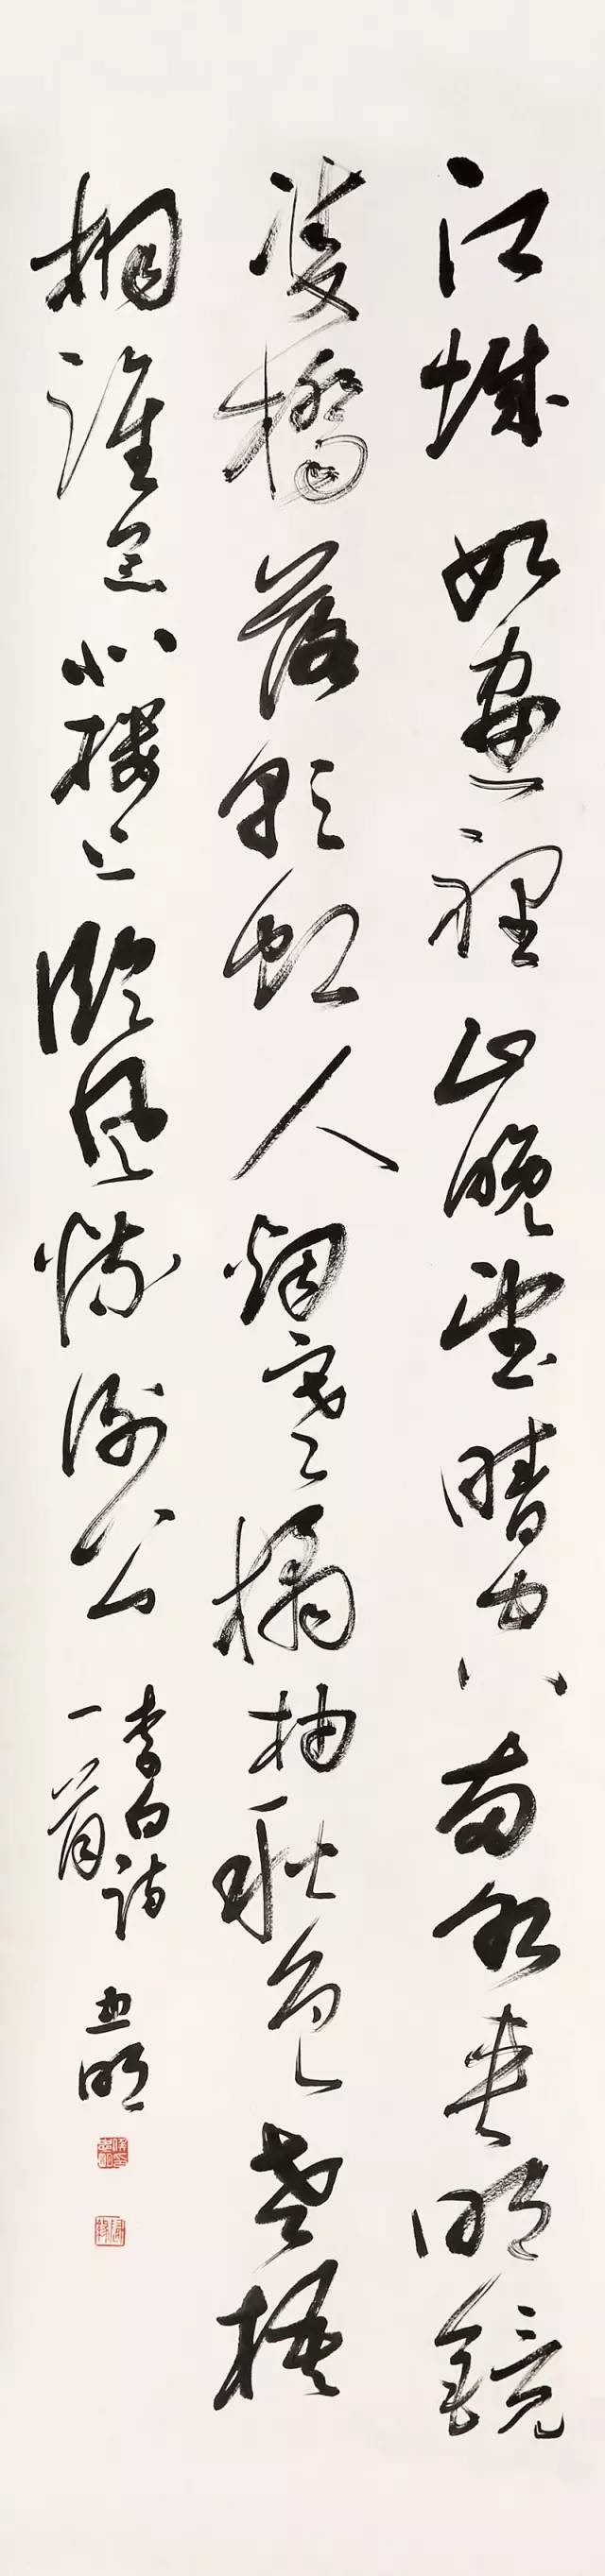 江城如畫裡山晚望晴空两水夹明鏡
雙橋落彩虹人烟寒橘柚秋色老梧
桐誰念北楼上臨風懷謝公
李白詩
一首
忠明